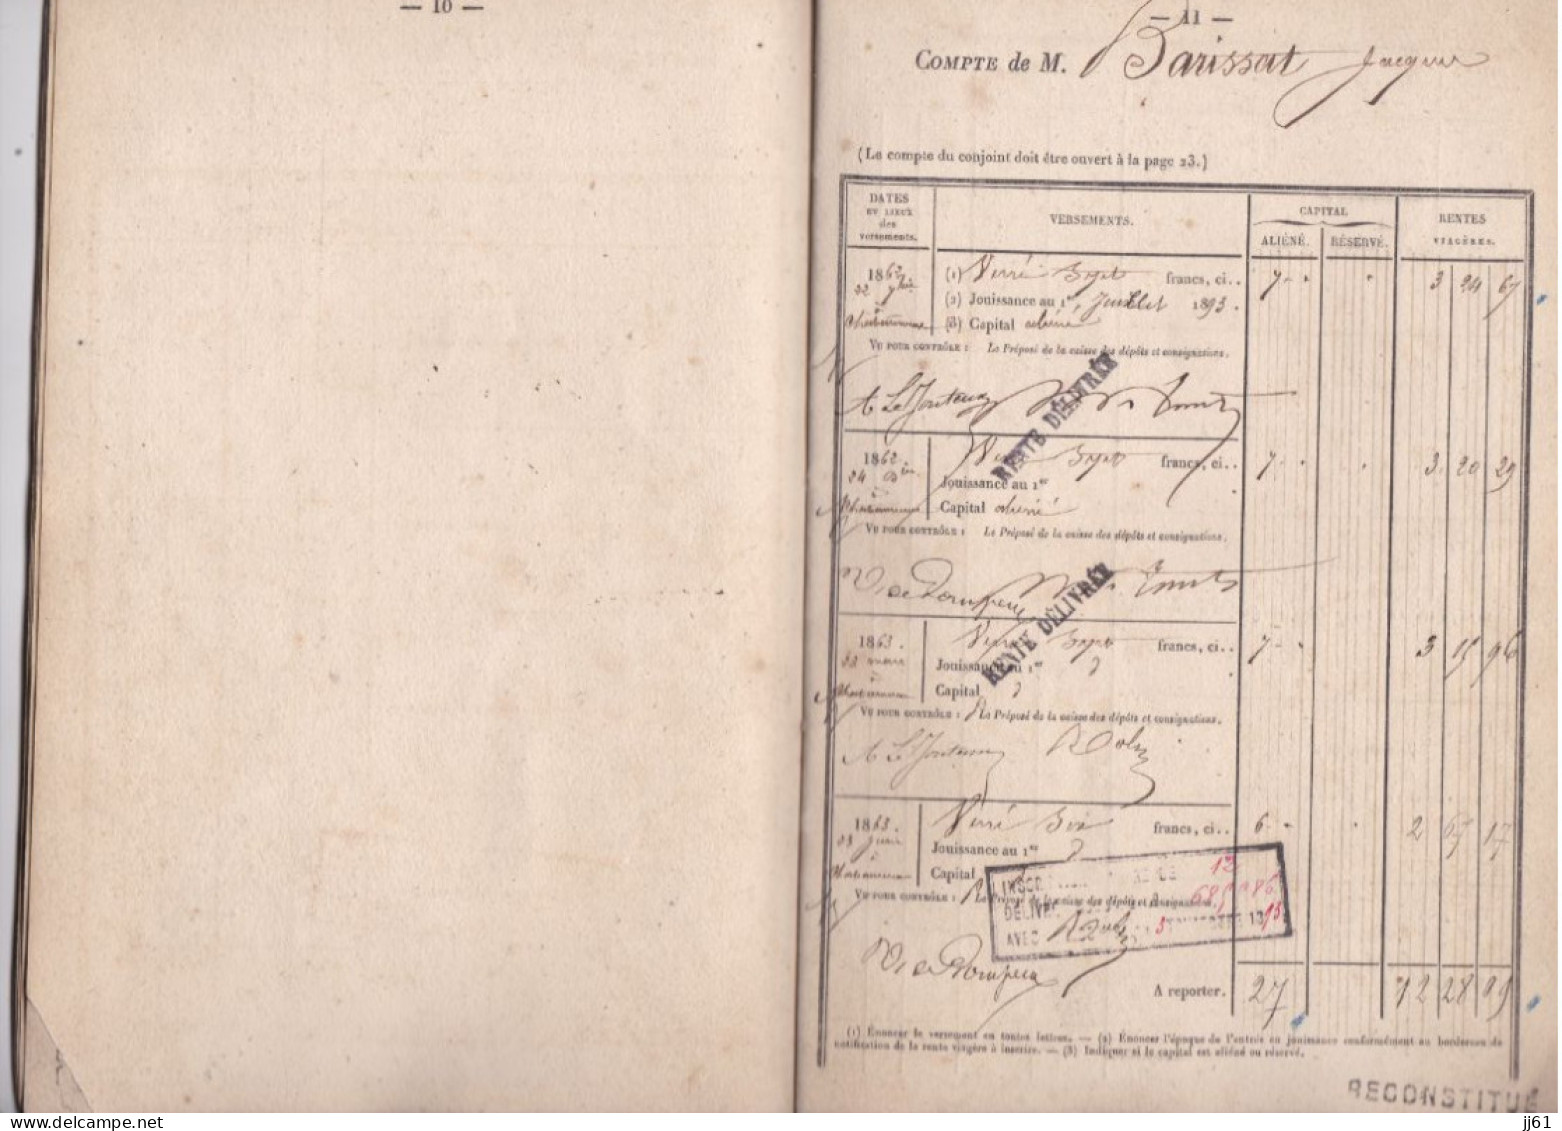 — 10 —
— 11 —
COMPTE de M. Barissat Jacques
(Le compte du conjoint doit être ouvert à la page 23.)
DATES
ET LIEUX
des
versements.
VERSEMENTS.
CAPITAL
ALIÉNÉ. RÉSERVÉ.
RENTES
VIAGÈRES.
1862 (1) Versé Sept francs, ci.. 7 - " " 3 24 67
22 9bre (2) Jouissance au 1er Juillet 1893.
(3) Capital aliéné
VU POUR CONTRÔLE : Le Préposé de la caisse des dépôts et consignations.
A Le Jouteux
RENTE DÉLIVRÉE
1862. Versé Sept francs, ci.. 7 - " " 3. 20 29
24 Jouissance au 1er
Capital aliéné
VU POUR CONTRÔLE : Le Préposé de la caisse des dépôts et consignations.
RENTE DÉLIVRÉE
1863. Versé Sept francs, ci.. 7 - " 3 15 96
23 mars Jouissance au 1er d
Capital d
VU POUR CONTRÔLE : Le Préposé de la caisse des dépôts et consignations.
A Le Jouteux
1863. Versé Six francs, ci.. 6 - " " 2 67 17
23 Juin Jouissance au 1er d
Capital
VU POUR CONTRÔLE : Le Préposé de la caisse des dépôts et consignations.
12
DÉLIVR
AVEC
A reporter. 27 12 28 09
(1) Énoncer le versement en toutes lettres. — (2) Énoncer l'époque de l'entrée en jouissance conformément au bordereau de
notification de la rente viagère à inscrire. — (3) Indiquer si le capital est aliéné ou réservé.
RECONSTITUÉ
jj61